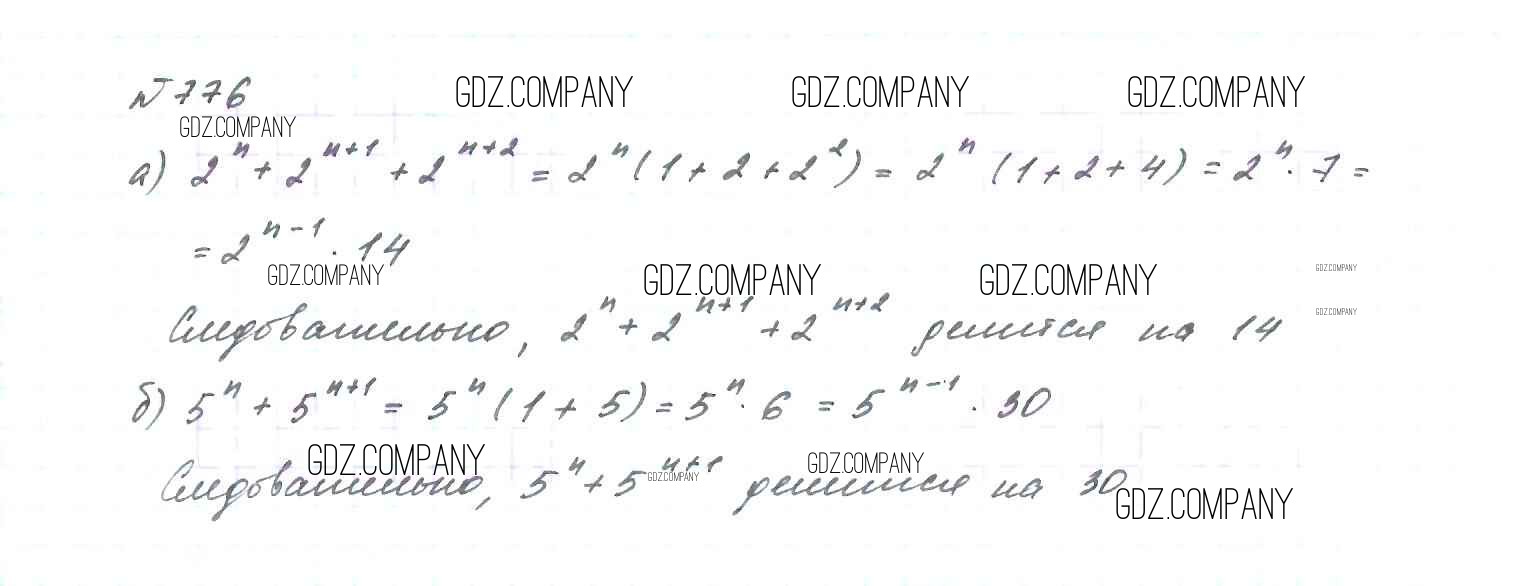 № 776 GDZ.COMPANY GDZ.COMPANY GDZ.COMPANY
GDZ.COMPANY
а) 2ⁿ + 2ⁿ⁺¹ + 2ⁿ⁺² = 2ⁿ (1 + 2 + 2²) = 2ⁿ (1 + 2 + 4) = 2ⁿ · 7 =
= 2ⁿ⁻¹ · 14
GDZ.COMPANY GDZ.COMPANY GDZ.COMPANY GDZ.COMPANY
GDZ.COMPANY
Следовательно, 2ⁿ + 2ⁿ⁺¹ + 2ⁿ⁺² делится на 14
б) 5ⁿ + 5ⁿ⁺¹ = 5ⁿ (1 + 5) = 5ⁿ · 6 = 5ⁿ⁻¹ · 30
GDZ.COMPANY GDZ.COMPANY GDZ.COMPANY
Следовательно, 5ⁿ + 5ⁿ⁺¹ делится на 30
GDZ.COMPANY